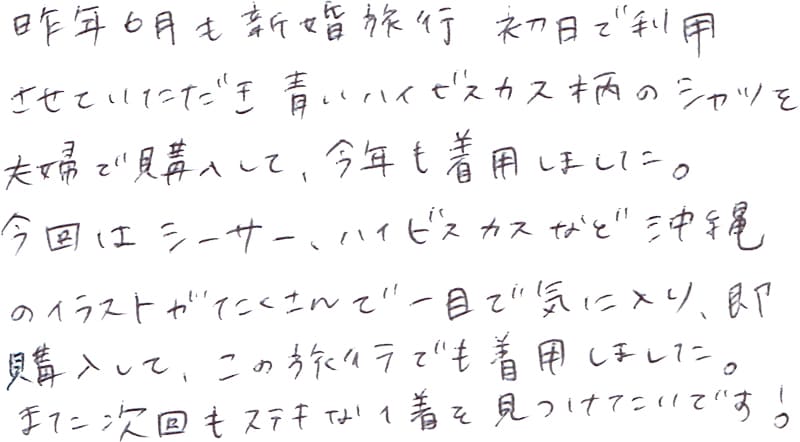 昨年6月も新婚旅行 初日で利用
させていただき 青いハイビスカス柄のシャツを
夫婦で購入して、今年も着用しました。
今回はシーサー、ハイビスカスなど沖縄
のイラストがたくさんで一目で気に入り、即
購入して、この旅行でも着用しました。
また次回もステキな1着を見つけたいです！